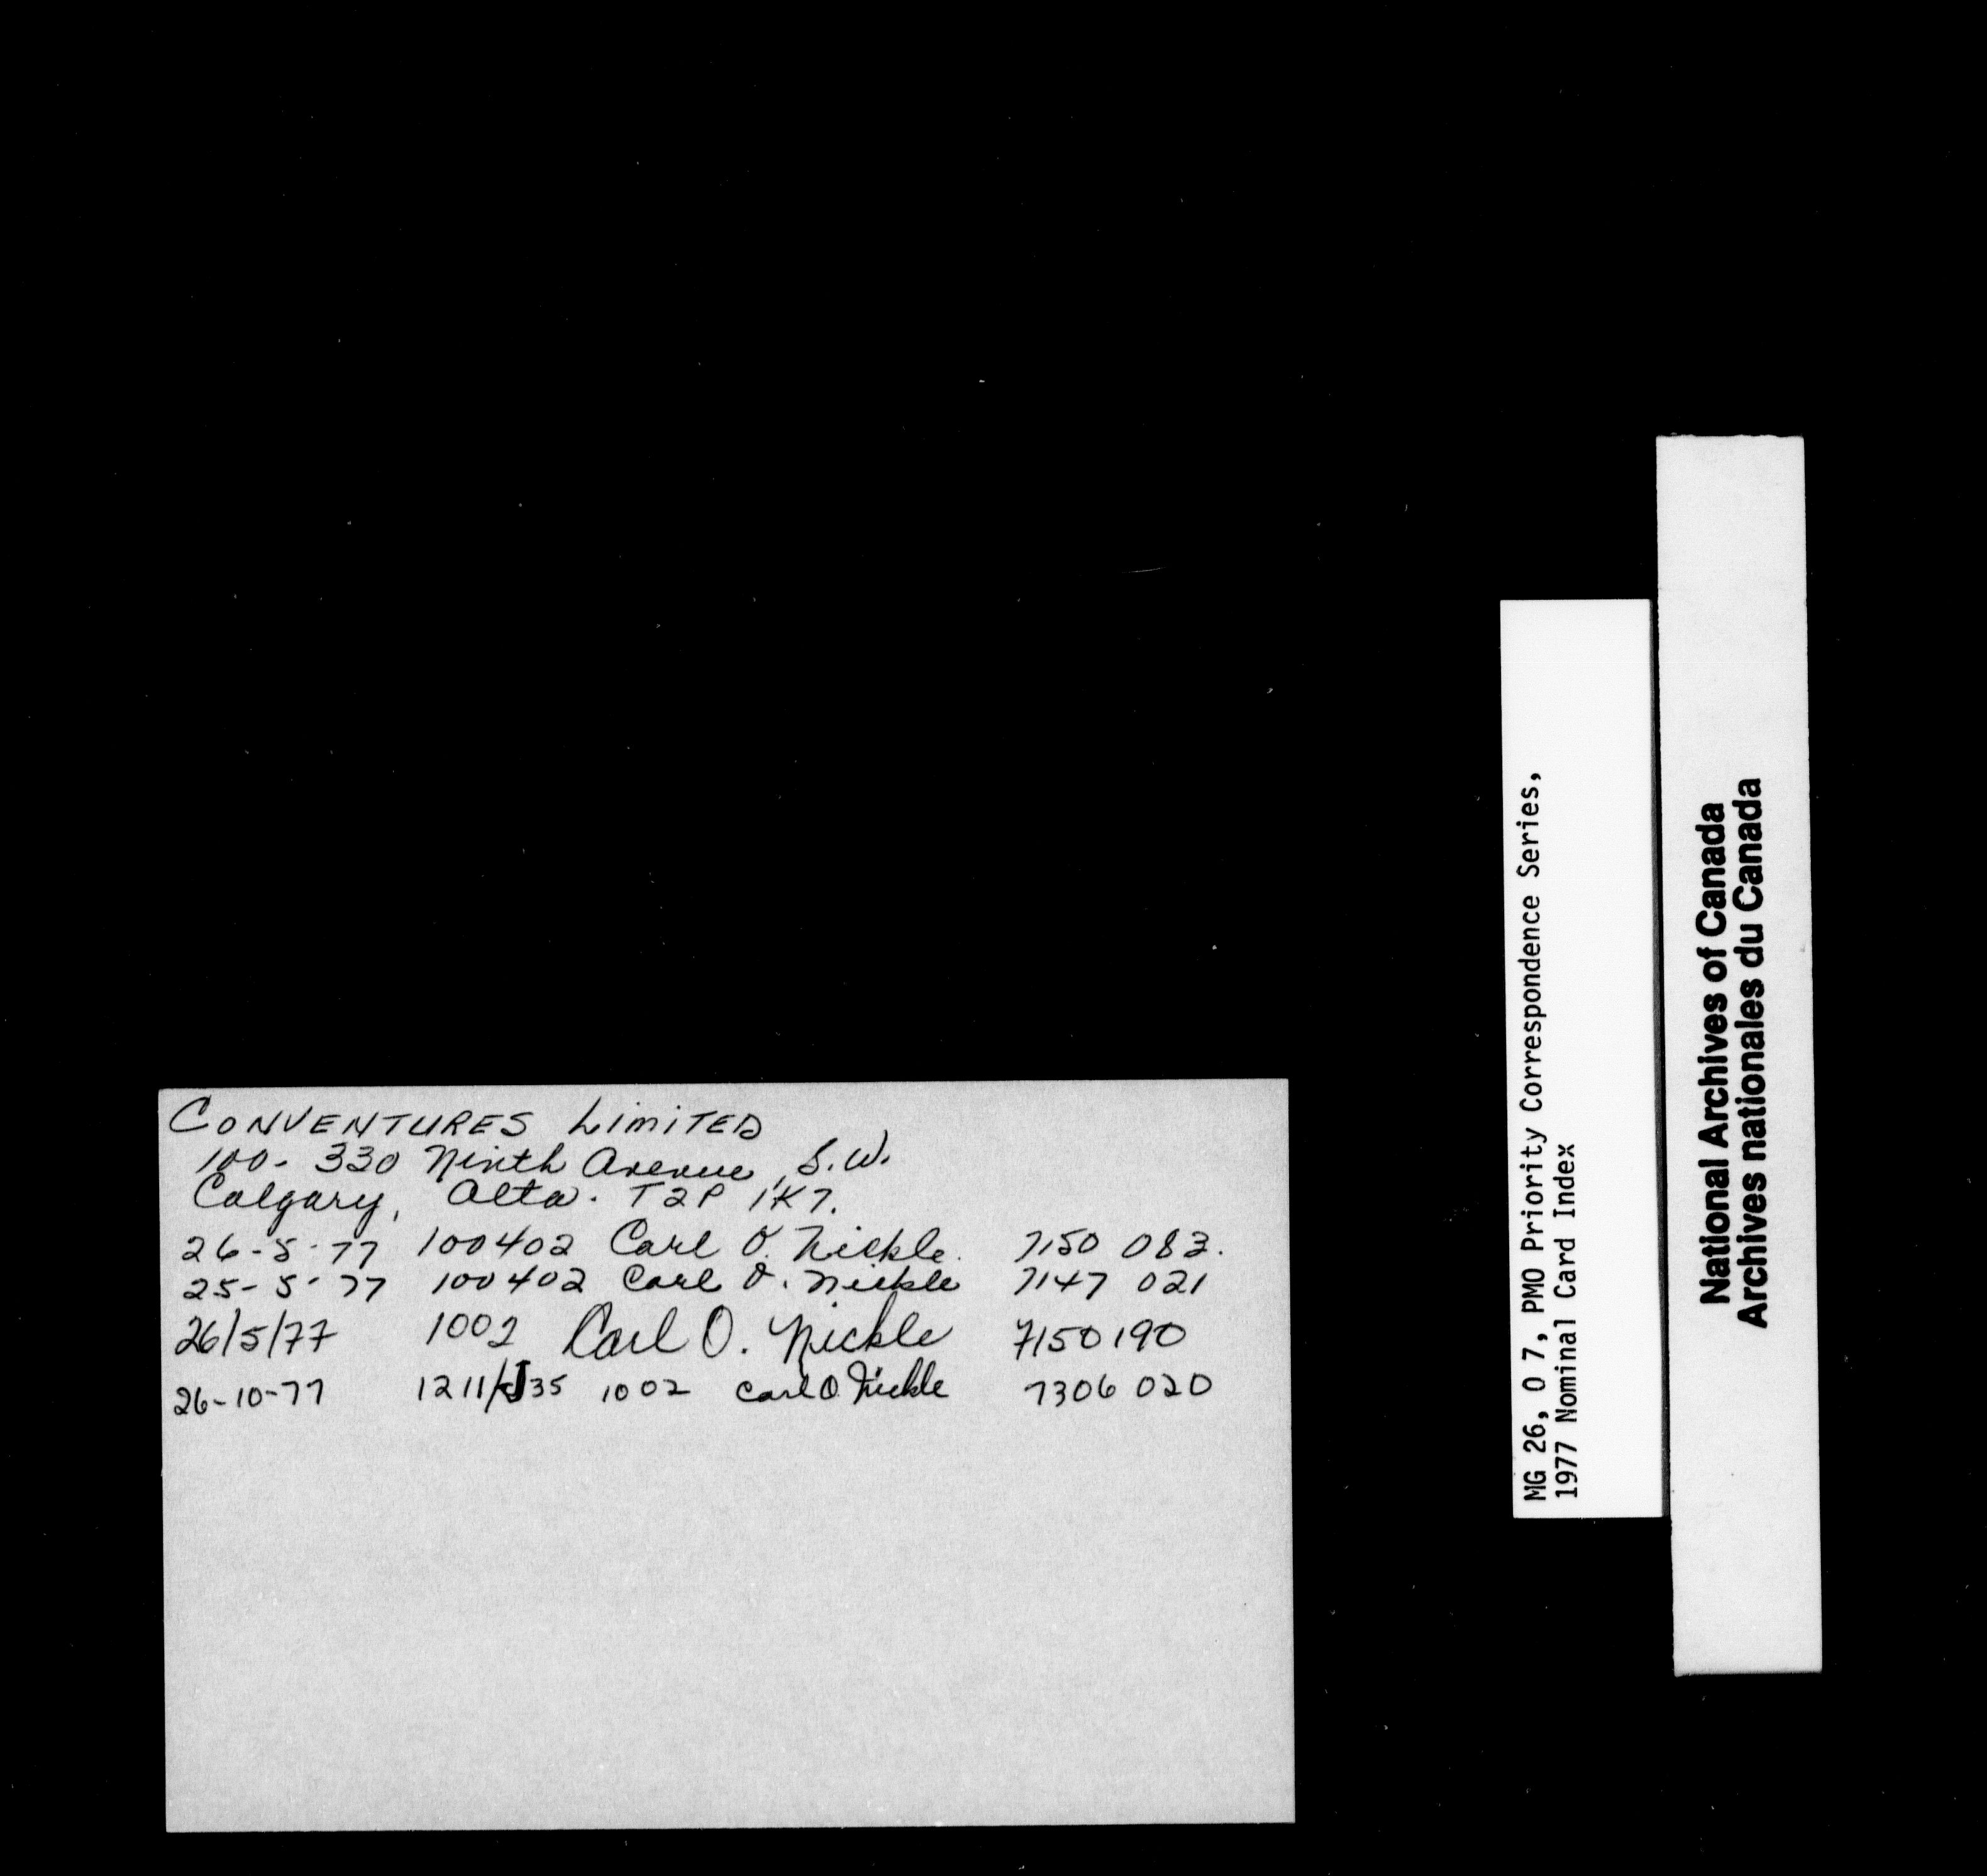 CONVENTURES LIMITED
100- 330 Ninth Avenue, S.W.
Calgary, Alta. T2P 1K7.
26-5-77 100402 Carl O. Nickle. 7150 083.
25-5-77 100402 Carl O. Nickle 7147 021
26/5/77 1002 Carl O. Nickle 7150190
26-10-77 1211/J35 1002 Carl O. Nickle 7306 020
MG 26, O 7, PMO Priority Correspondence Series,
1977 Nominal Card Index
National Archives of Canada
Archives nationales du Canada